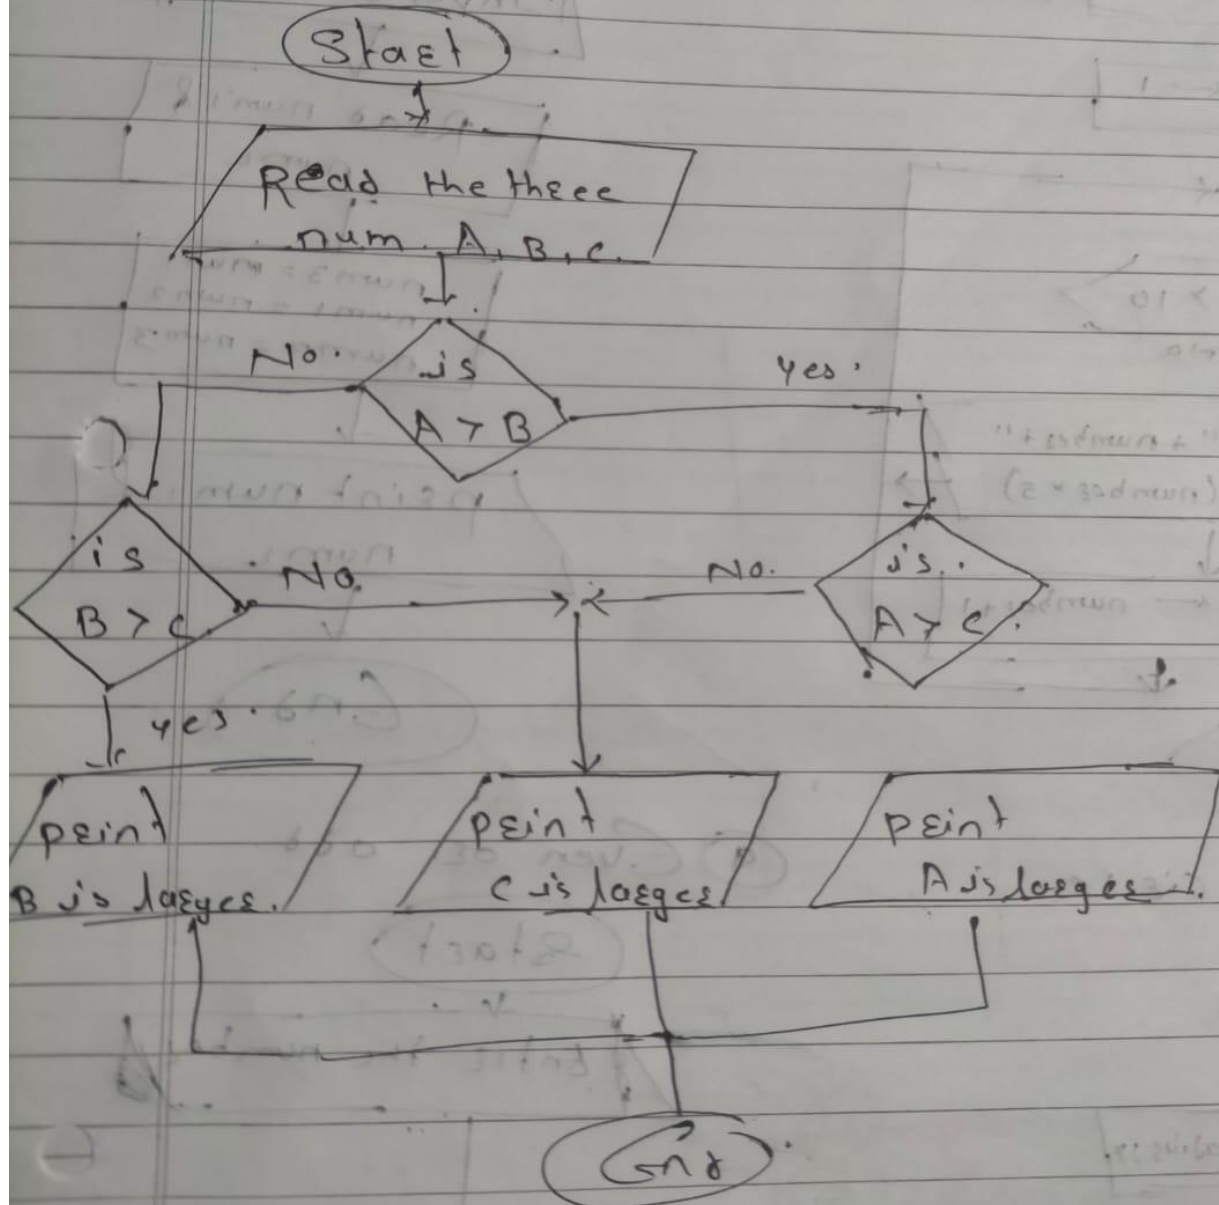 Start
Read the three
num. A, B, C.
No.
is
A > B
Yes.
is
B > C
No.
No.
is.
A > C
yes.
print
B is larger.
print
C is larger
print
A is larger.
End